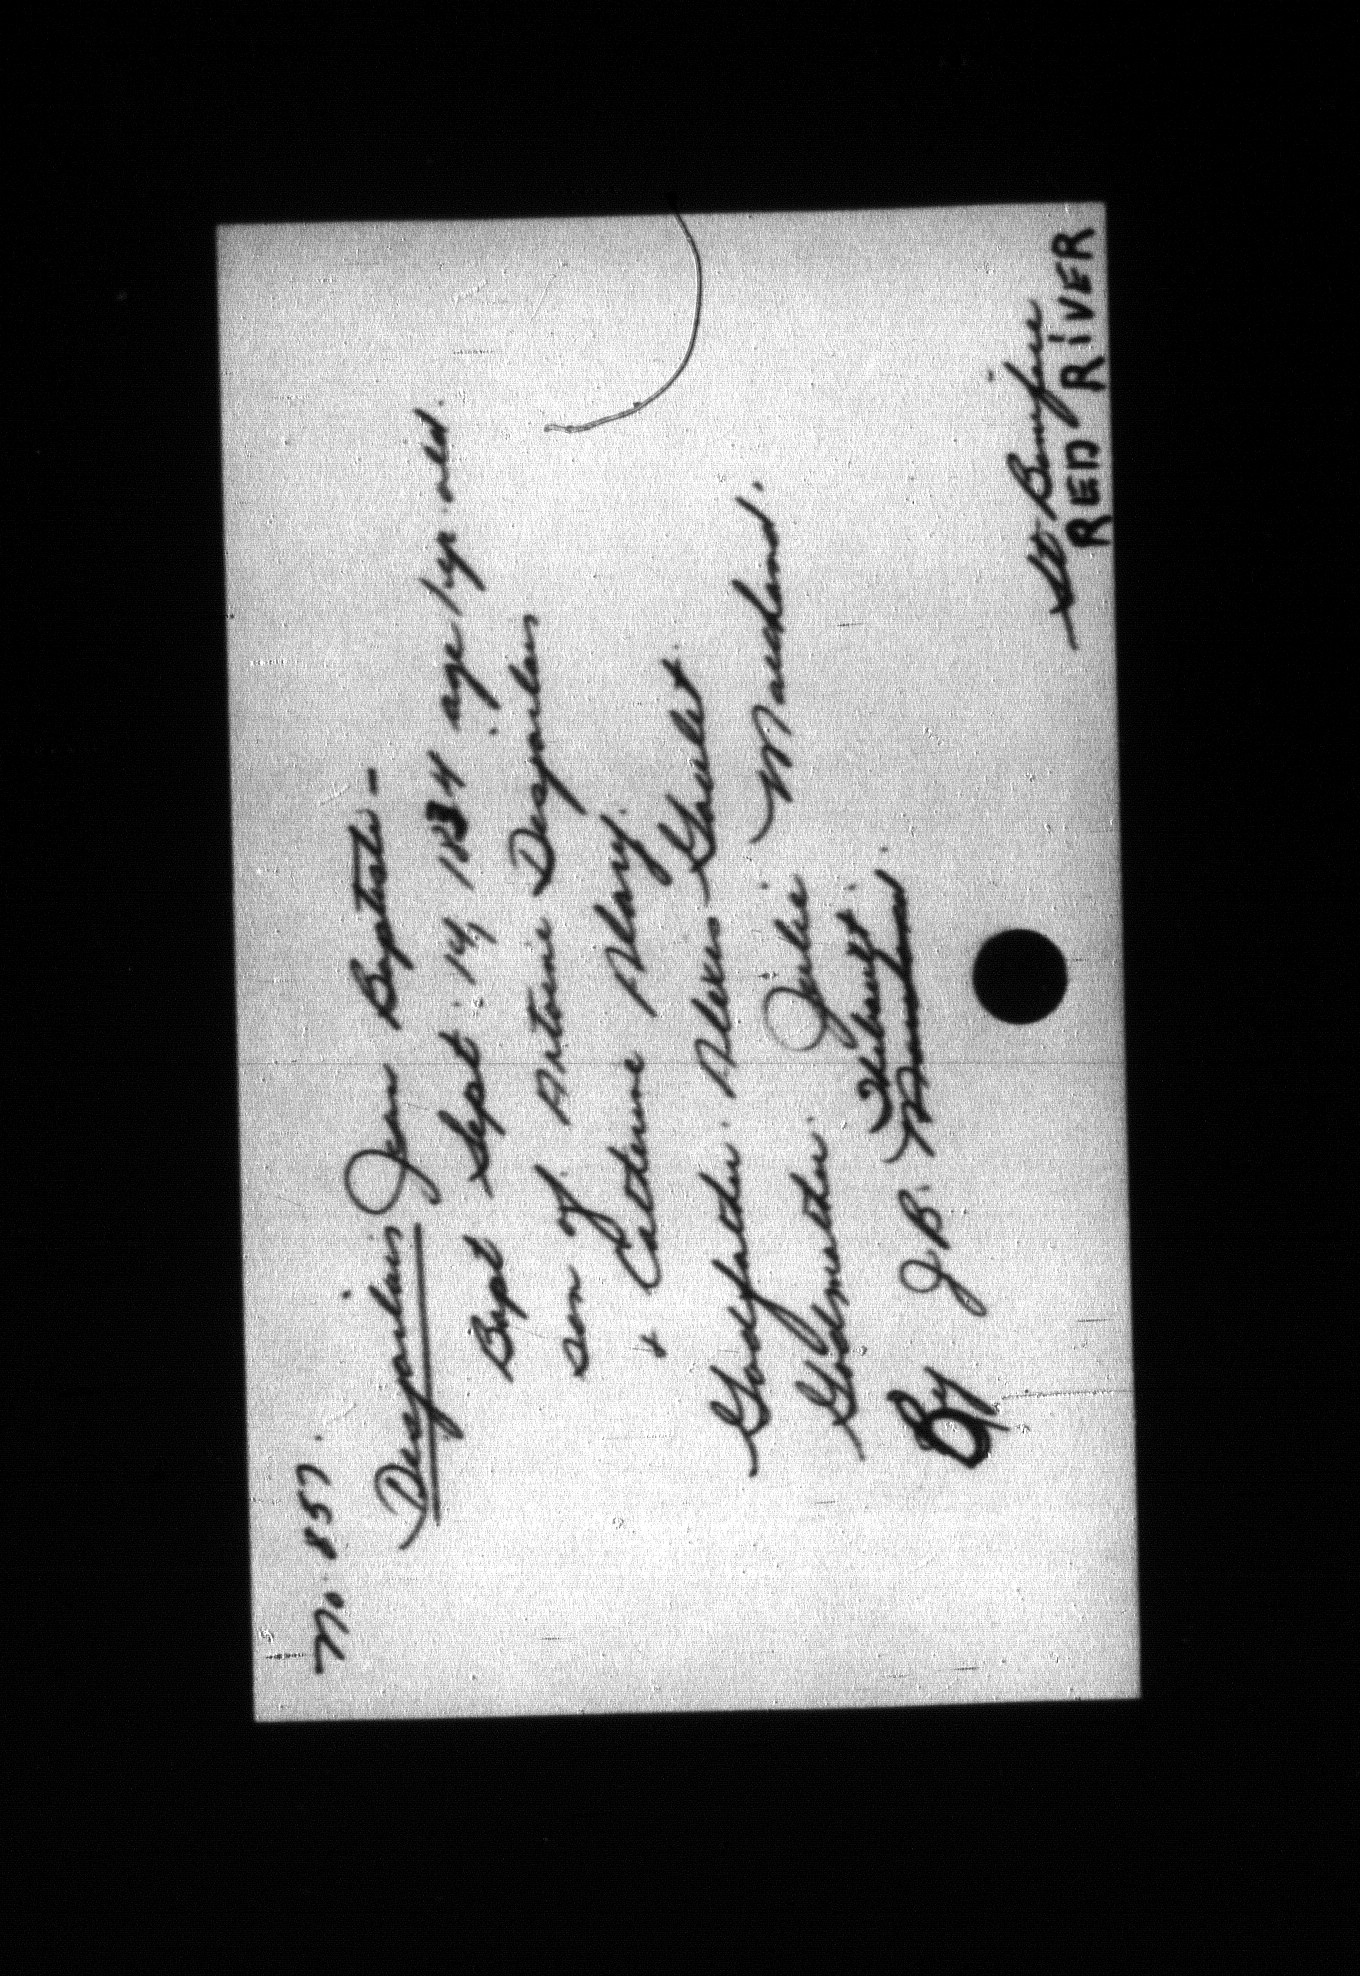 No. 857.
Desjarlais Jean Baptiste -
Bapt Sept. 14, 1834 age 1 yr. old.
son of Antoine Desjarlais
& Catherine Alary.
Godfather. Alexis Goulet.
Godmother. Julie Marchand.
Thibault.
By J.B. Marchand.
St. Boniface
RED RIVER